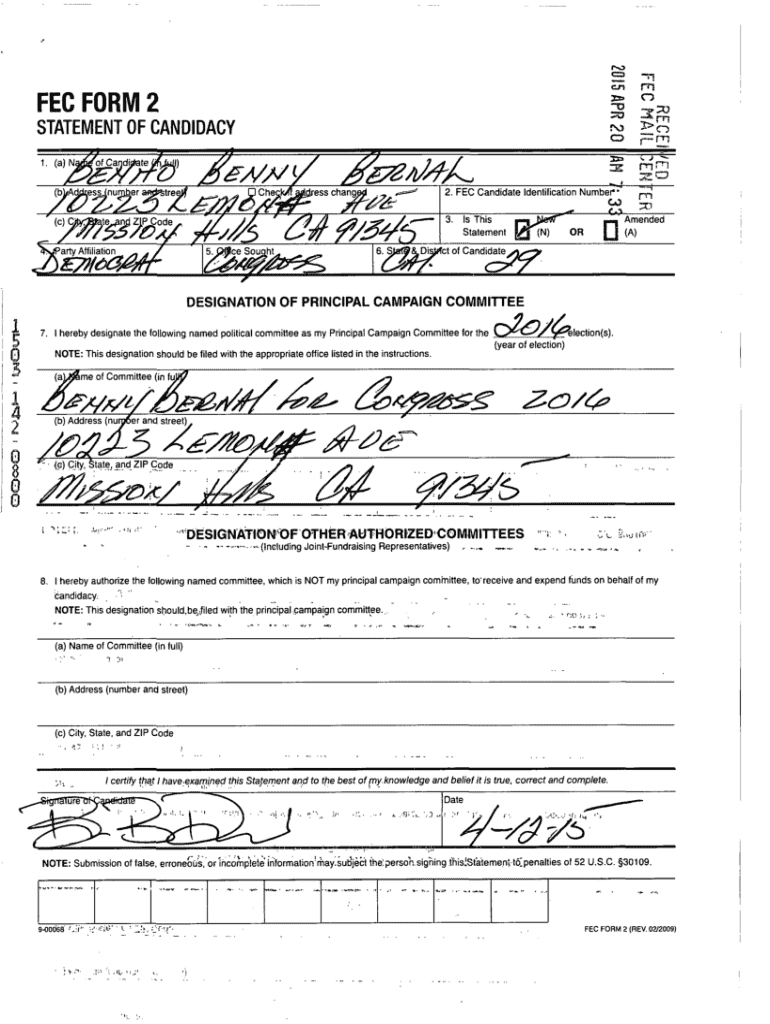 RECEIVED
FEC MAIL CENTER
2015 APR 20 AM 7:33
FEC FORM 2
STATEMENT OF CANDIDACY
1. (a) Name of Candidate (in full)
BENITO BENNY BERNAL
(b) Address (number and street) Check if address changed 2. FEC Candidate Identification Number
10223 LEMONA AVE
(c) City, State, and ZIP Code 3. Is This Statement New (N) OR Amended (A)
MISSION HILLS CA 91345
4. Party Affiliation 5. Office Sought 6. State & District of Candidate
DEMOCRAT CONGRESS CAL. 29
DESIGNATION OF PRINCIPAL CAMPAIGN COMMITTEE
7. I hereby designate the following named political committee as my Principal Campaign Committee for the 2016 election(s).
(year of election)
NOTE: This designation should be filed with the appropriate office listed in the instructions.
(a) Name of Committee (in full)
BENNY BERNAL FOR CONGRESS 2016
(b) Address (number and street)
10223 LEMONA AVE
(c) City, State, and ZIP Code
MISSION HILLS CA 91345
DESIGNATION OF OTHER AUTHORIZED COMMITTEES
(Including Joint Fundraising Representatives)
8. I hereby authorize the following named committee, which is NOT my principal campaign committee, to receive and expend funds on behalf of my
candidacy.
NOTE: This designation should be filed with the principal campaign committee.
(a) Name of Committee (in full)
(b) Address (number and street)
(c) City, State, and ZIP Code
I certify that I have examined this Statement and to the best of my knowledge and belief it is true, correct and complete.
Signature of Candidate Date
4-12-15
NOTE: Submission of false, erroneous, or incomplete information may subject the person signing this Statement to penalties of 52 U.S.C. §30109.
9-00068
FEC FORM 2 (REV. 02/2009)
1503-142-0800